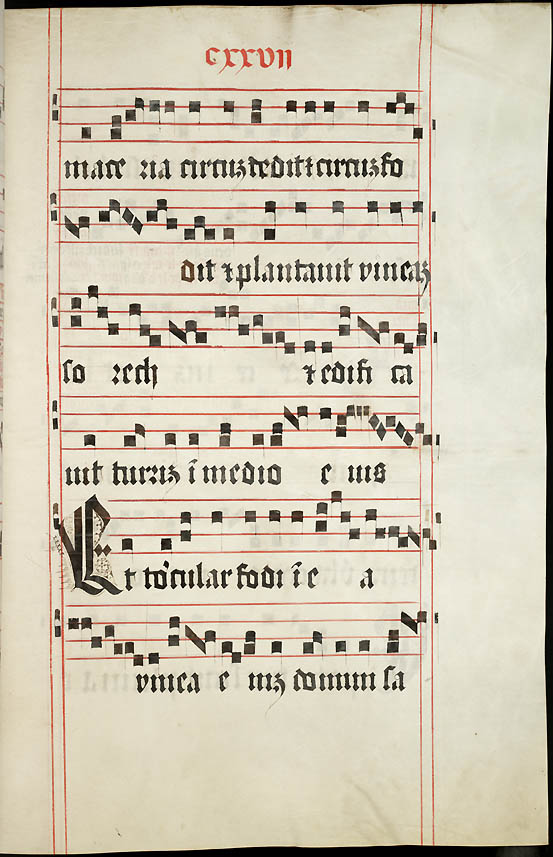 cxxvii
mace ria circūdedit ⁊ circūfo
dit ⁊ plantavit vineaʒ
so rech ⁊ edifi ca
uit turriʒ ī medio e ius
Et torcular fodi ī e a
vinea e niʒ domini sa